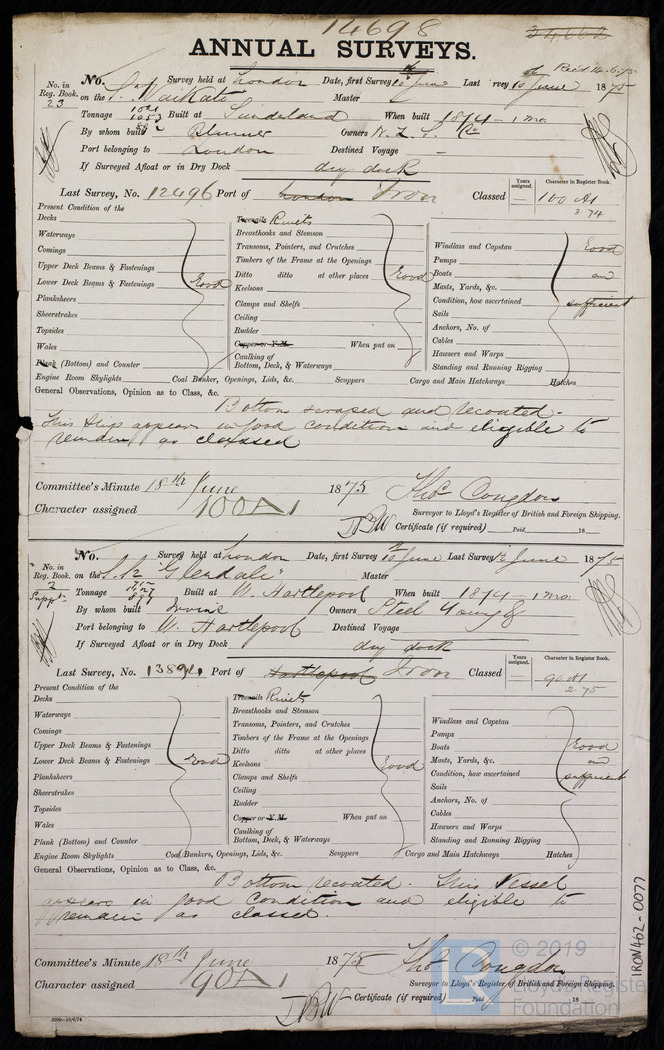 14698
34662
ANNUAL SURVEYS.
Rec'd 14.6.75
No. in Reg. Book. 23
No. Survey held at London Date, first Survey 10 June Last Survey 10 June 1875
on the S. Waikato Master
Tonnage 1021 1053 Built at Sunderland When built 1874 - 1 mo
By whom built Blumer Owners N. Z. S. Co
Port belonging to London Destined Voyage -
If Surveyed Afloat or in Dry Dock dry dock
Last Survey, No. 12496 Port of London Iron Classed
Years assigned. Character in Register Book.
100 A1
3.74
Present Condition of the
Decks
Waterways
Comings
Upper Deck Beams & Fastenings
Lower Deck Beams & Fastenings Good
Planksheers
Sheerstrakes
Topsides
Wales
Plank (Bottom) and Counter
Treenails Rivets
Breasthooks and Stemson
Transoms, Pointers, and Crutches
Timbers of the Frame at the Openings
Ditto ditto at other places Good
Keelsons
Clamps and Shelfs
Ceiling
Rudder
Copper or Y.M. When put on
Caulking of Bottom, Deck, & Waterways
Windlass and Capstan Good
Pumps
Boats and
Masts, Yards, &c.
Condition, how ascertained sufficient
Sails
Anchors, No. of
Cables
Hawsers and Warps
Standing and Running Rigging
Engine Room Skylights Coal Bunker, Openings, Lids, &c. Scuppers Cargo and Main Hatchways Hatches
General Observations, Opinion as to Class, &c.
Bottom scraped and recoated.
This Ship appears in good condition and eligible to
remain as classed
Committee's Minute 18th June 1875 Thos Congdon
Character assigned 100 A1
Surveyor to Lloyd's Register of British and Foreign Shipping.
Certificate (if required) Paid 18
No. in Reg. Book. 2 Suppt.
No. Survey held at London Date, first Survey 10 June Last Survey 12 June 1875
on the S.S. "Glendale" Master
Tonnage Built at W. Hartlepool When built 1874 - 1 mo
By whom built Irvine Owners Steel Young &
Port belonging to W. Hartlepool Destined Voyage
If Surveyed Afloat or in Dry Dock dry dock
Last Survey, No. Port of Hartlepool Iron Classed
Years assigned. Character in Register Book.
90 A1
2.75
Present Condition of the
Decks
Waterways
Comings
Upper Deck Beams & Fastenings
Lower Deck Beams & Fastenings Good
Planksheers
Sheerstrakes
Topsides
Wales
Plank (Bottom) and Counter
Treenails Rivets
Breasthooks and Stemson
Transoms, Pointers, and Crutches
Timbers of the Frame at the Openings
Ditto ditto at other places
Keelsons Good
Clamps and Shelfs
Ceiling
Rudder
Copper or Y.M. When put on
Caulking of Bottom, Deck, & Waterways
Windlass and Capstan
Pumps
Boats Good
Masts, Yards, &c. and
Condition, how ascertained sufficient
Sails
Anchors, No. of
Cables
Hawsers and Warps
Standing and Running Rigging
Engine Room Skylights Coal Bunkers, Openings, Lids, &c. Scuppers Cargo and Main Hatchways Hatches
General Observations, Opinion as to Class, &c.
Bottom recoated. This Vessel
appears in good Condition and eligible to
remain as classed.
Committee's Minute 18th June 1875 Thos Congdon
Character assigned 90 A1
Surveyor to Lloyd's Register of British and Foreign Shipping.
Certificate (if required) Paid 18
IRON462-0077
© 2019
Lloyd's Register
Foundation